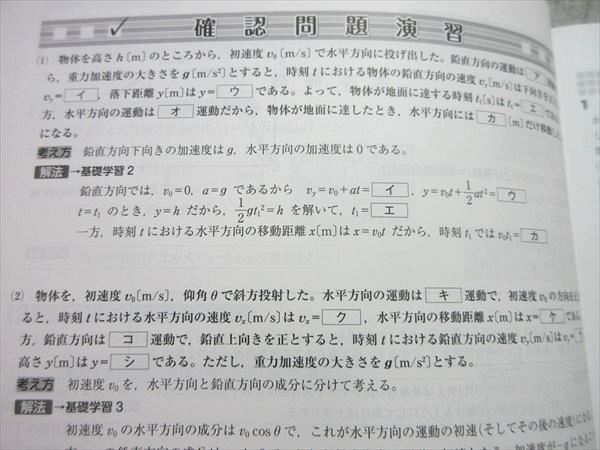 ✓ 確認問題演習
(1) 物体を高さh〔m〕のところから，初速度v₀〔m/s〕で水平方向に投げ出した。鉛直方向の運動は ア
ら，重力加速度の大きさをg〔m/s²〕とすると，時刻tにおける物体の鉛直方向の速度vy〔m/s〕は下向きを
vy= イ ，落下距離y〔m〕はy= ウ である。よって，物体が地面に達する時刻t₁〔s〕はt₁= エ
方，水平方向の運動は オ 運動だから，物体が地面に達したとき，水平方向には カ 〔m〕だけ移動し
になる。
考え方 鉛直方向下向きの加速度はg，水平方向の加速度は0である。
解法 →基礎学習2
鉛直方向では，v₀=0，a=gであるから vy=v₀+at= イ ，y=v₀t+1/2at²= ウ
t=t₁のとき，y=hだから，1/2gt₁²=hを解いて，t₁= エ
一方，時刻tにおける水平方向の移動距離x〔m〕はx=v₀tだから，時刻t₁ではv₀t₁= カ
(2) 物体を，初速度v₀〔m/s〕，仰角θで斜方投射した。水平方向の運動は キ 運動で，初速度v₀の方向を
ると，時刻tにおける水平方向の速度vx〔m/s〕はvx= ク ，水平方向の移動距離x〔m〕はx= ケ であ
方，鉛直方向は コ 運動で，鉛直上向きを正とすると，時刻tにおける鉛直方向の速度vy〔m/s〕はvy=
高さy〔m〕はy= シ である。ただし，重力加速度の大きさをg〔m/s²〕とする。
考え方 初速度v₀を，水平方向と鉛直方向の成分に分けて考える。
解法 →基礎学習3
初速度v₀の水平方向の成分はv₀cosθで，これが水平方向の運動の初速(そしてその後の速度)にな
1